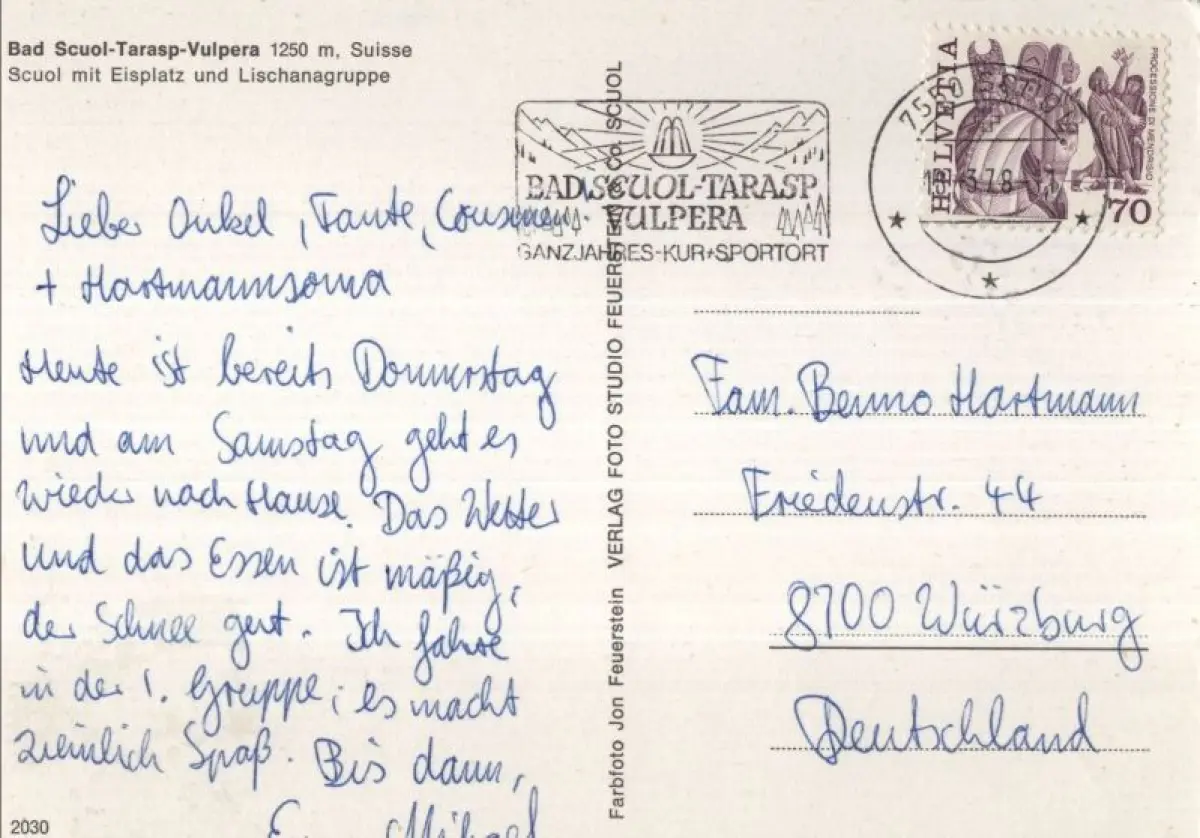 Bad Scuol-Tarasp-Vulpera 1250 m, Suisse
Scuol mit Eisplatz und Lischanagruppe
Lieber Onkel, Tante, Cousine
+ Hartmannsoma
Heute ist bereits Donnerstag
und am Samstag geht es
wieder nach Hause. Das Wetter
und das Essen ist mäßig,
der Schnee gut. Ich fahre
in der 1. Gruppe; es macht
ziemlich Spaß. Bis dann,
Michael
2030
Farbfoto Jon Feuerstein VERLAG FOTO STUDIO FEUERSTEIN Co. SCUOL
BAD SCUOL-TARASP
VULPERA
GANZJAHRES-KUR+SPORTORT
7550
HELVETIA
PROCESSIONE DI MENDRISIO
70
Fam. Benno Hartmann
Friedenstr. 44
8700 Würzburg
Deutschland